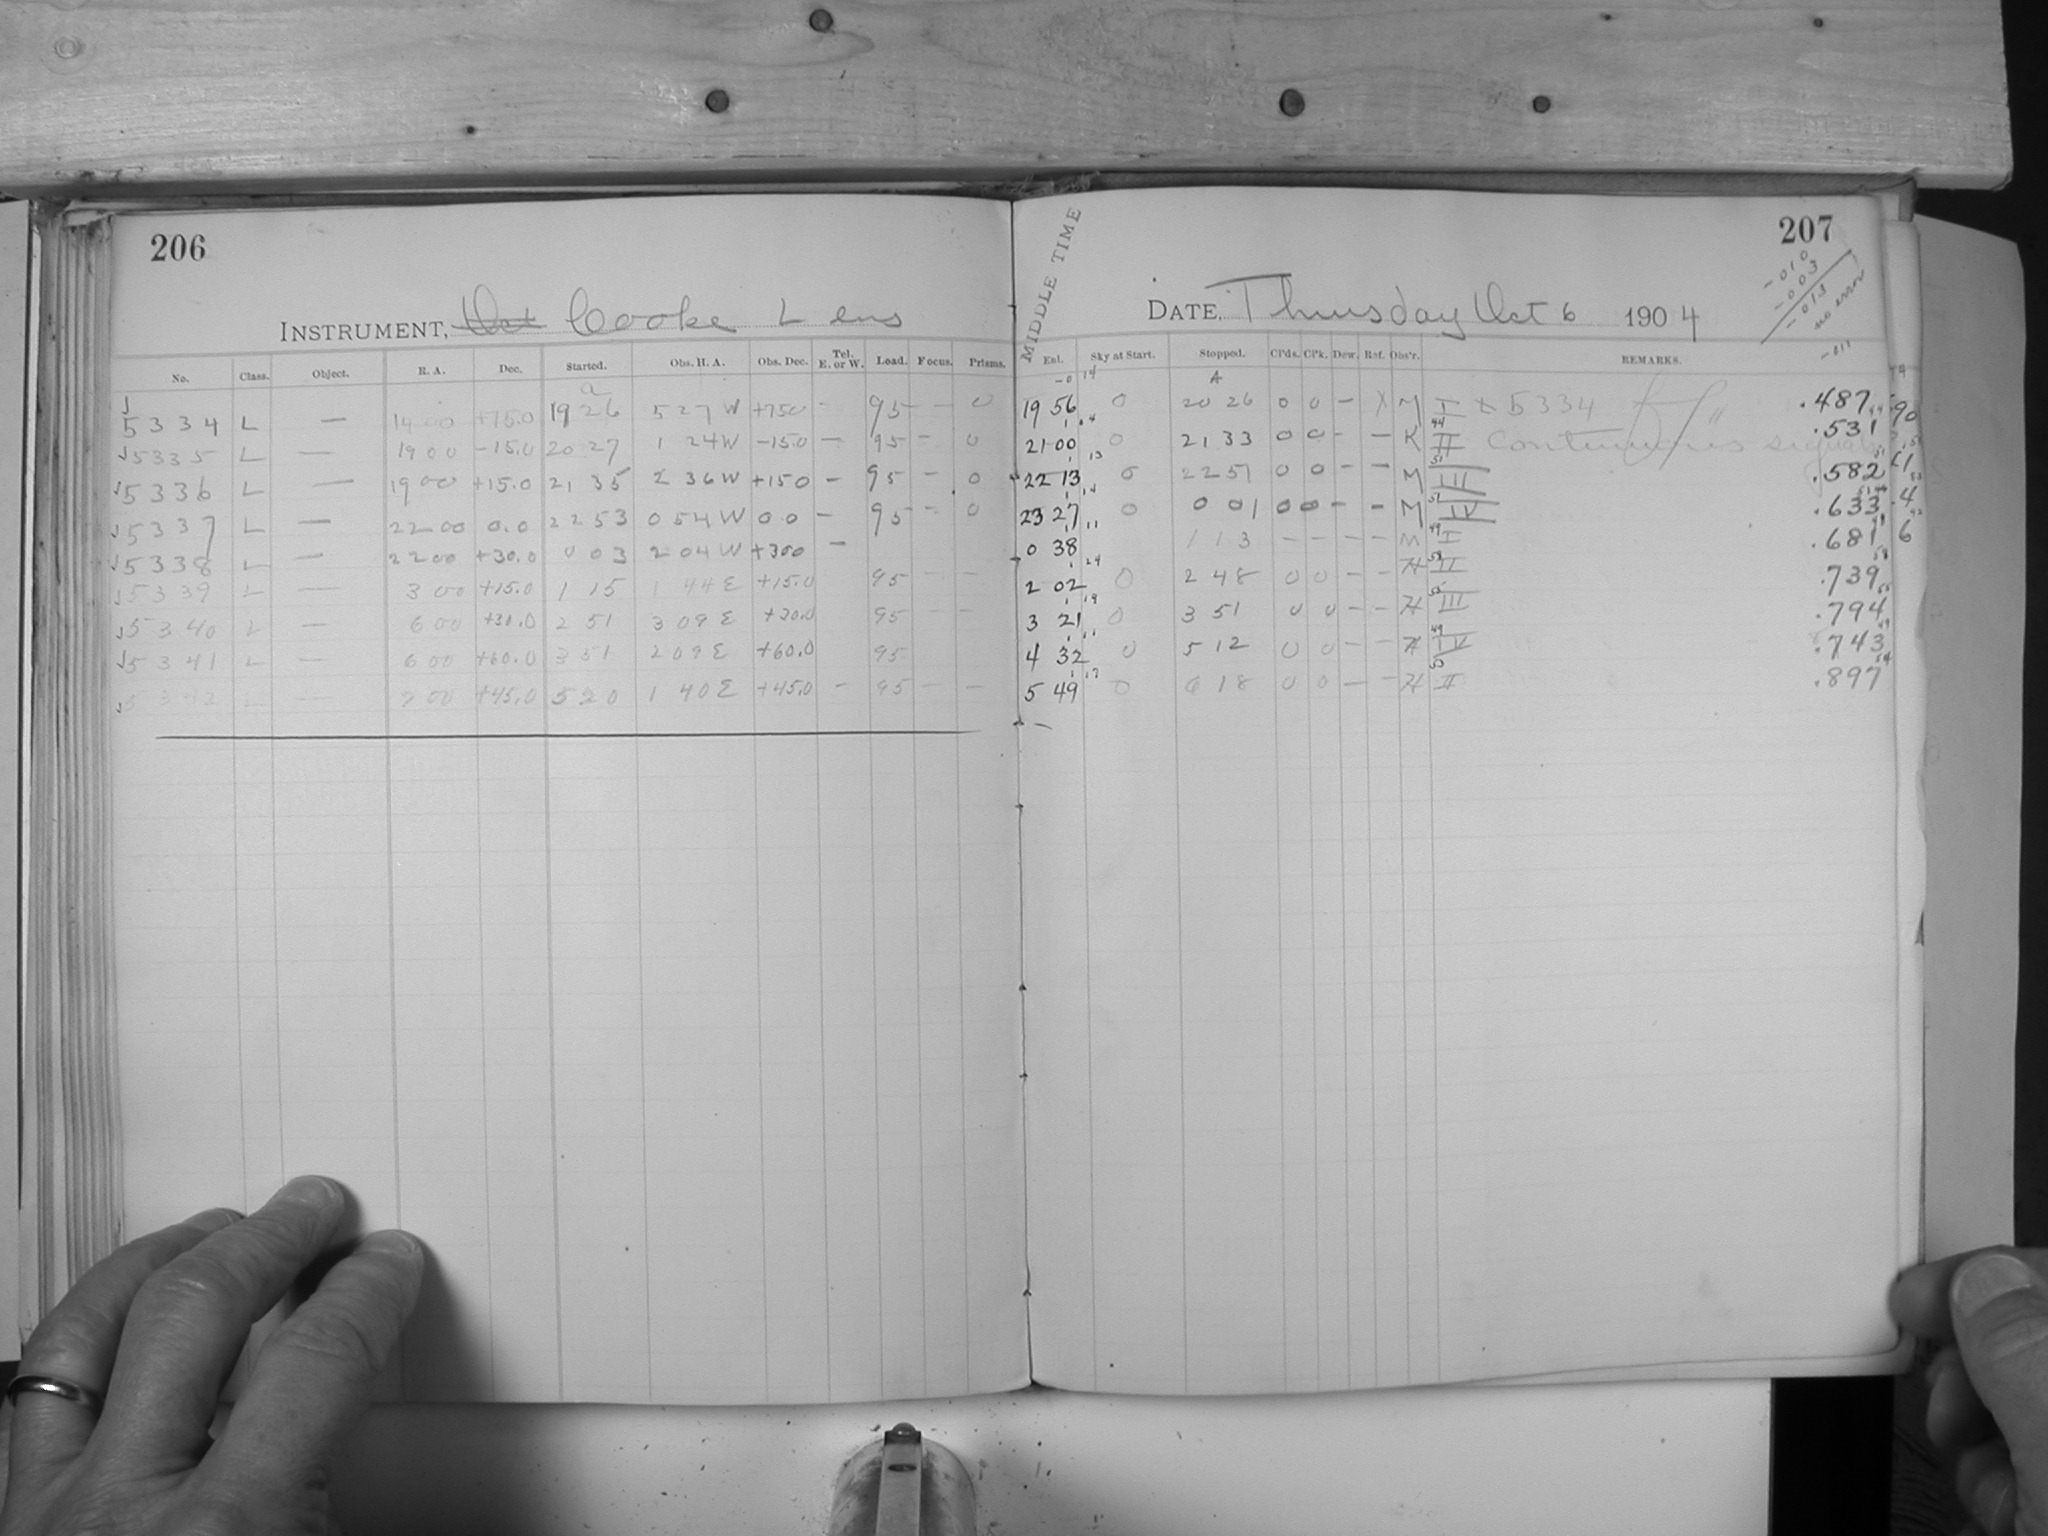 206
INSTRUMENT, Oct Cooke Lens
No. Class. Object. R. A. Dec. Started. Obs. H. A. Obs. Dec. Tel. E. or W. Load. Focus. Prisms.
a
5334 L — 14 00 +75.0 19 26 5 27 W +75.0 - 95 - - 0
5335 L — 19 00 -15.0 20 27 1 24 W -15.0 - 95 - 0
5336 L — 19 00 +15.0 21 35 2 36 W +15.0 - 95 - 0
5337 L — 22 00 0.0 22 53 0 54 W 0.0 - 95 - 0
5338 L — 22 00 +30.0 0 03 2 04 W +30.0 -
5339 L — 3 00 +15.0 1 15 1 44 E +15.0 95 - -
5340 L — 6 00 +30.0 2 51 3 09 E +30.0 95 - -
5341 L — 6 00 +60.0 3 51 2 09 E +60.0 95
5342 L — 7 00 +45.0 5 20 1 40 E +45.0 - 95 - -
207
MIDDLE TIME
-010
-003
-013
no error
-011
DATE, Thursday Oct 6 1904
Ent. Sky at Start. Stopped. Cl'ds. Cl'k. Dew. Ref. Obs'r. REMARKS.
A
19 56 0 20 26 0 0 - X M I x 5334 .487
21 00 0 21 33 0 0 - - K II .531
22 13 0 22 51 0 0 - - M III .582
23 27 0 0 01 0 0 - - M IV .633
0 38 1 13 - - - - M I .681
2 02 0 2 48 0 0 - - H II .739
3 21 0 3 51 0 0 - - H III .794
4 32 0 5 12 0 0 - - H IV .743
5 49 0 6 18 0 0 - - H II .897